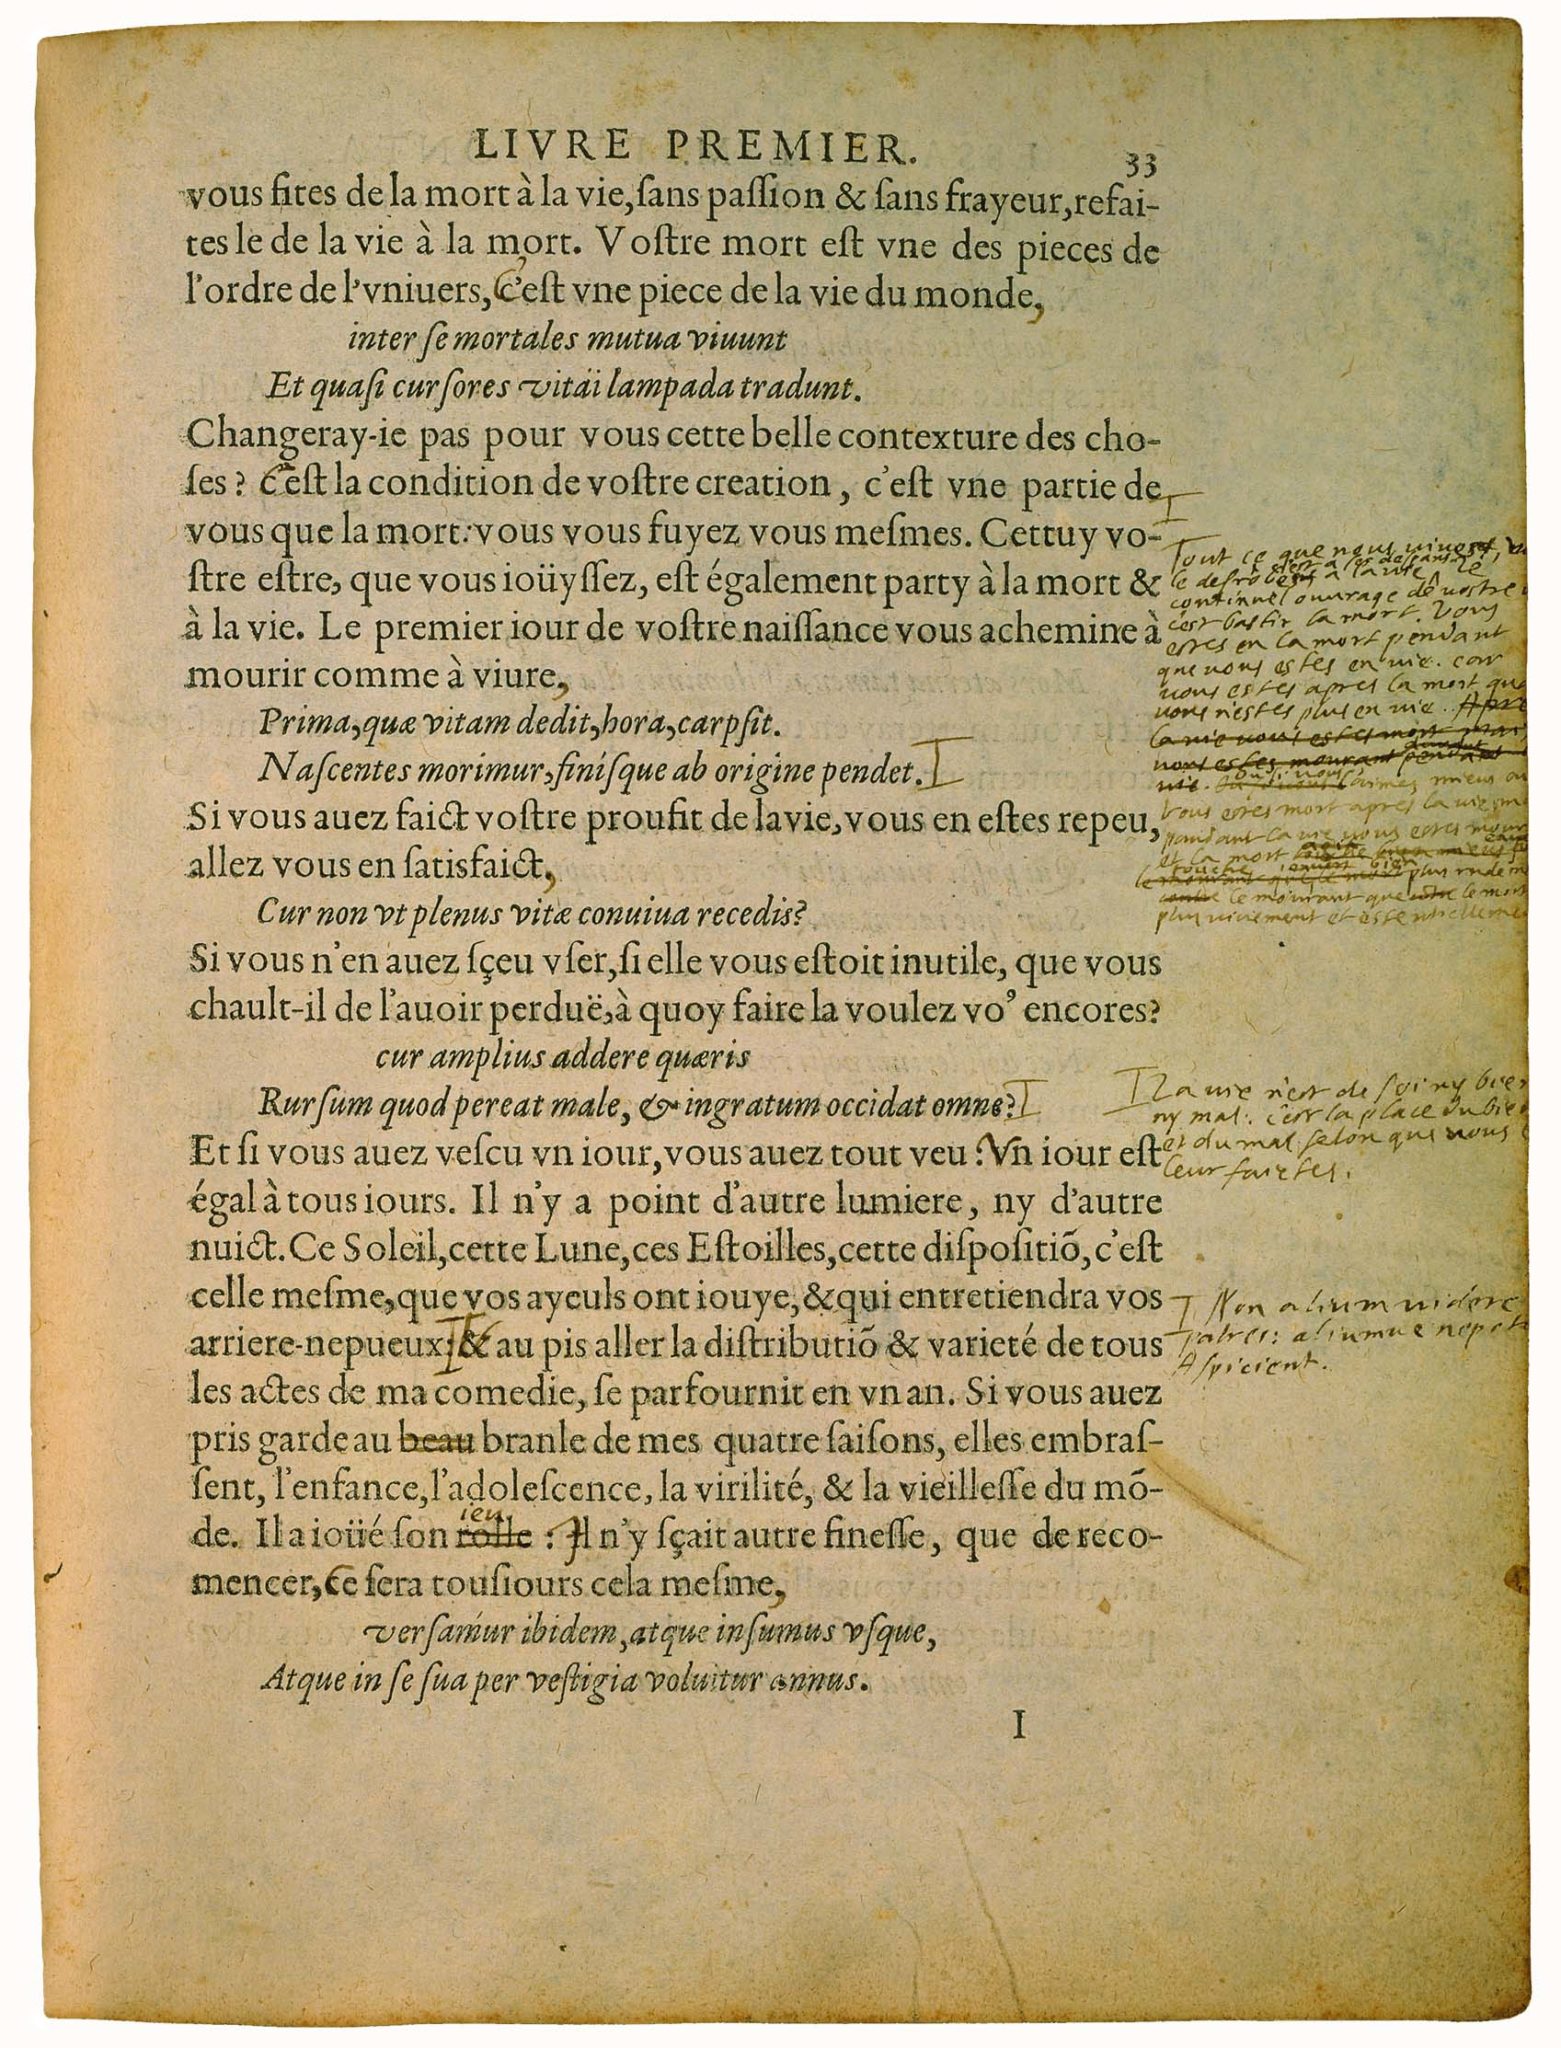 LIVRE PREMIER.
33
vous fites de la mort à la vie, ſans paſſion & ſans frayeur, refai-
tes le de la vie à la mort. Voſtre mort eſt vne des pieces de
l'ordre de l'vniuers, C'eſt vne piece de la vie du monde,
inter ſe mortales mutua viuunt
Et quaſi curſores vitäi lampada tradunt.
Changeray-ie pas pour vous cette belle contexture des cho-
ſes? C'eſt la condition de voſtre creation, c'eſt vne partie de
vous que la mort: vous vous fuyez vous meſmes. Cettuy vo-
ſtre eſtre, que vous ioüyſſez, eſt également party à la mort &
à la vie. Le premier iour de voſtre naiſſance vous achemine à
mourir comme à viure,
Prima, quæ vitam dedit, hora, carpſit.
Naſcentes morimur, finiſque ab origine pendet.
Si vous auez faict voſtre proufit de la vie, vous en eſtes repeu,
allez vous en ſatisfaict,
Cur non vt plenus vitæ conuiua recedis?
Si vous n'en auez ſçeu vſer, ſi elle vous eſtoit inutile, que vous
chault-il de l'auoir perduë, à quoy faire la voulez vo' encores?
cur amplius addere quæris
Rurſum quod pereat male, & ingratum occidat omne?
Et ſi vous auez veſcu vn iour, vous auez tout veu: Vn iour eſt
égal à tous iours. Il n'y a point d'autre lumiere, ny d'autre
nuict. Ce Soleil, cette Lune, ces Eſtoilles, cette diſpoſitiõ, c'eſt
celle meſme, que vos ayeuls ont iouye, & qui entretiendra vos
arriere-nepueux: & au pis aller la diſtributiõ & varieté de tous
les actes de ma comedie, ſe parfournit en vn an. Si vous auez
pris garde au beau branle de mes quatre ſaiſons, elles embraſ-
ſent, l'enfance, l'adoleſcence, la virilité, & la vieilleſſe du mõ-
ieu
de. Il a ioüé ſon rolle: Il n'y ſçait autre fineſſe, que de reco-
mencer, Ce ſera touſiours cela meſme,
verſamur ibidem, atque inſumus vſque,
Atque in ſe ſua per veſtigia voluitur annus.
I
Tout ce que nous viues,
le desrobes a la vie, le
continuel ouvrage de vostre
c'est bastir la mort. Vous
estes en la mort pendant
que vous estes en vie. car
vous estes apres la mort
vous n'estes plus en vie.
la vie vous estes mort
vous estes mourant pendant
vie. aimes mieus
Vous estes mort apres la vie
pendant la vie vous estes
et la mort
touche bien plus
le mourant que le mort
plus vivement et
La vie n'est de soi ny
ny mal: c'est la place du
et du mal selon que vous
leur faictes.
Non alium videre
patres: aliumve
Aspicient.